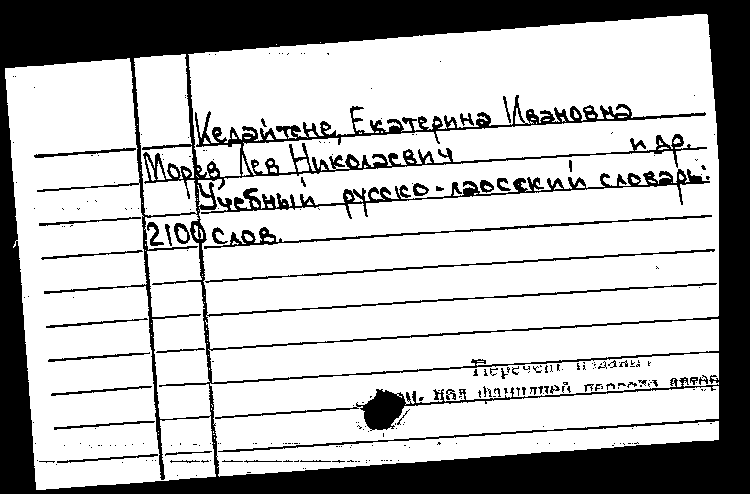 Кедайтене, Екатерина Ивановна
Морев, Лев Николаевич и др.
Учебный русско-лаосский словарь:
2100 слов.
Перечень издани
под фамилией первого автор